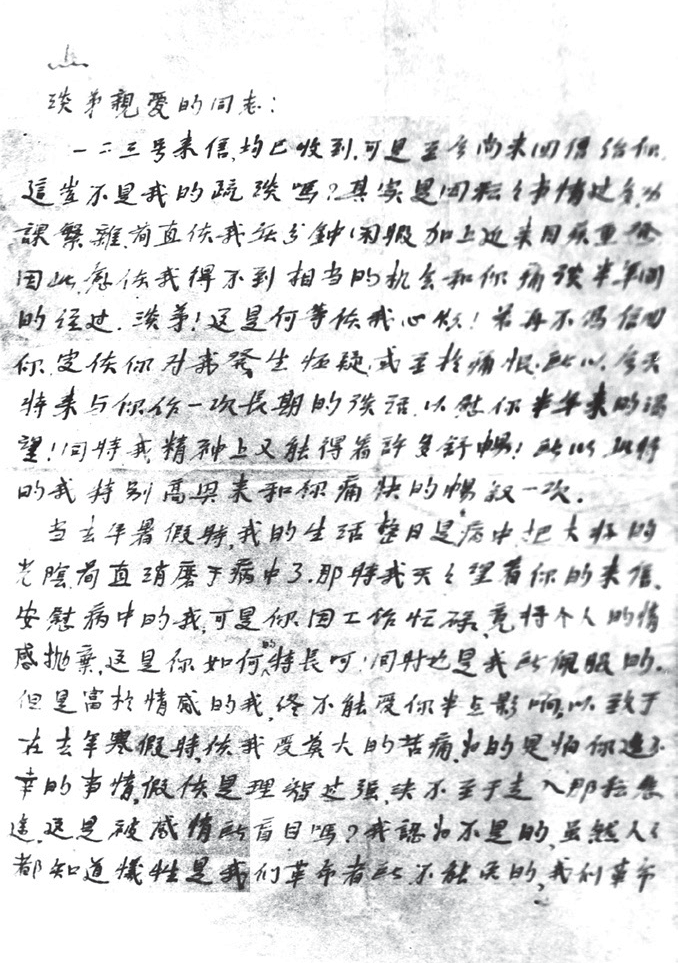 淡弟親愛的同志：
一二三号来信，均已收到，可是至今尚未回信给你，
這豈不是我的疏淡嗎？其实是因種々事情过多，功
課繁雜，简直使我無分鐘闲暇加上近来目疾重發
因此，愈使我得不到相当的机会和你痛談半年间
的经过。淡弟！这是何等使我心欲！若再不馮信回
你，定使你对我發生怀疑，或至於痛恨，所以今天
特来与你作一次長期的談话，以慰你半年来的渴
望！同時我精神上又能得着許多舒暢！所以此時
的我特别高興来和你痛快的暢叙一次。
当去年暑假時，我的生活整日是病中，把大好的
光陰简直消磨于病中了。那時我天天望着你的来信，
安慰病中的我，可是你因工作忙碌，竟将个人的情
感抛棄，这是你如何的特長呵！同时也是我所佩服的。
但是富於情感的我，终不能受你半点影响，以致于
在去年寒假時，使我受莫大的苦痛，为的是怕你遭不
幸的事情，假使是理智过强，决不至于走入那種
途，这是被感情所盲目嗎？我認为不是的，虽然人々
都知道犧牲是我们革命者所不能免的，我们革命